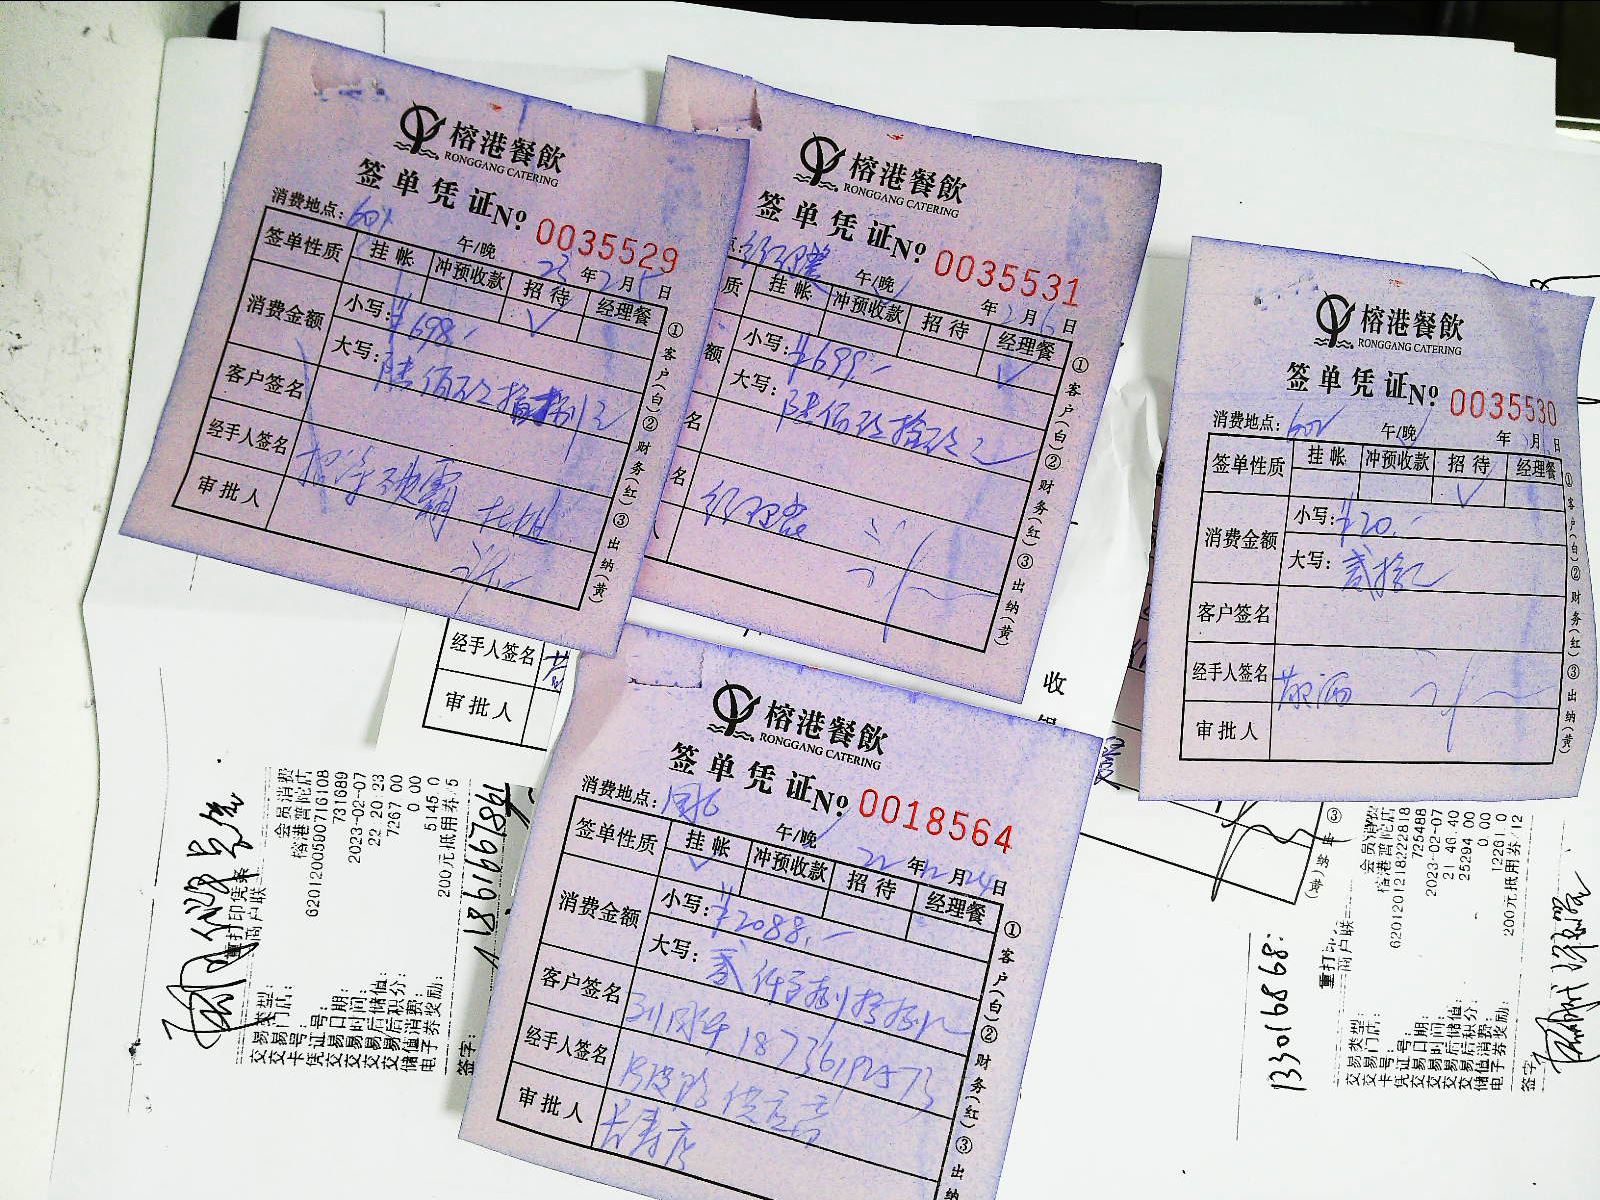 榕港餐飲
RONGGANG CATERING
签单凭证 № 0035529
消费地点: 601 午/晚 23年2月5日
签单性质 挂帐 冲预收款 招待 经理餐
消费金额 小写: ¥698.-
大写: 陆佰玖拾捌元
客户签名
经手人签名
审批人
①客户(白)②财务(红)③出纳(黄)
榕港餐飲
RONGGANG CATERING
签单凭证 № 0035531
午/晚 年2月6日
质 挂帐 冲预收款 招待 经理餐
额 小写: ¥699.-
大写: 陆佰玖拾玖元
名
名 经理餐
①客户(白)②财务(红)③出纳(黄)
榕港餐飲
RONGGANG CATERING
签单凭证 № 0035530
消费地点: 602 午/晚 年 月 日
签单性质 挂帐 冲预收款 招待 经理餐
消费金额 小写: ¥20.-
大写: 贰拾元
客户签名
经手人签名
审批人
①客户(白)②财务(红)③出纳(黄)
经手人签名
审批人
收
榕港餐飲
RONGGANG CATERING
签单凭证 № 0018564
消费地点: 午/晚 22年12月24日
签单性质 挂帐 冲预收款 招待 经理餐
消费金额 小写: ¥2088.-
大写: 贰仟零捌拾捌元
客户签名 18736192573
经手人签名
审批人 长寿店
①客户(白)②财务(红)③出纳
重打印凭条
商户联
交易类型: 会员消费
交易门店: 榕港普陀店
卡号: 6201200590716108
凭证号: 731689
交易日期: 2023-02-07
交易时间: 22 20 23
交易后储值: 7267 00
交易后积分: 0 00
储值消费: 5145 0
电子券奖励: 200元抵用券 5
签字:
18616667891
13301681868:
重打印
商户联
交易类型: 会员消费
交易门店: 榕港普陀店
卡号: 6201201218222818
凭证号: 725488
交易日期: 2023-02-07
交易时间: 21 46 40
交易后储值: 25294 00
交易后积分: 0 00
储值消费: 12261 0
电子券奖励: 200元抵用券 12
签字:
(黄)